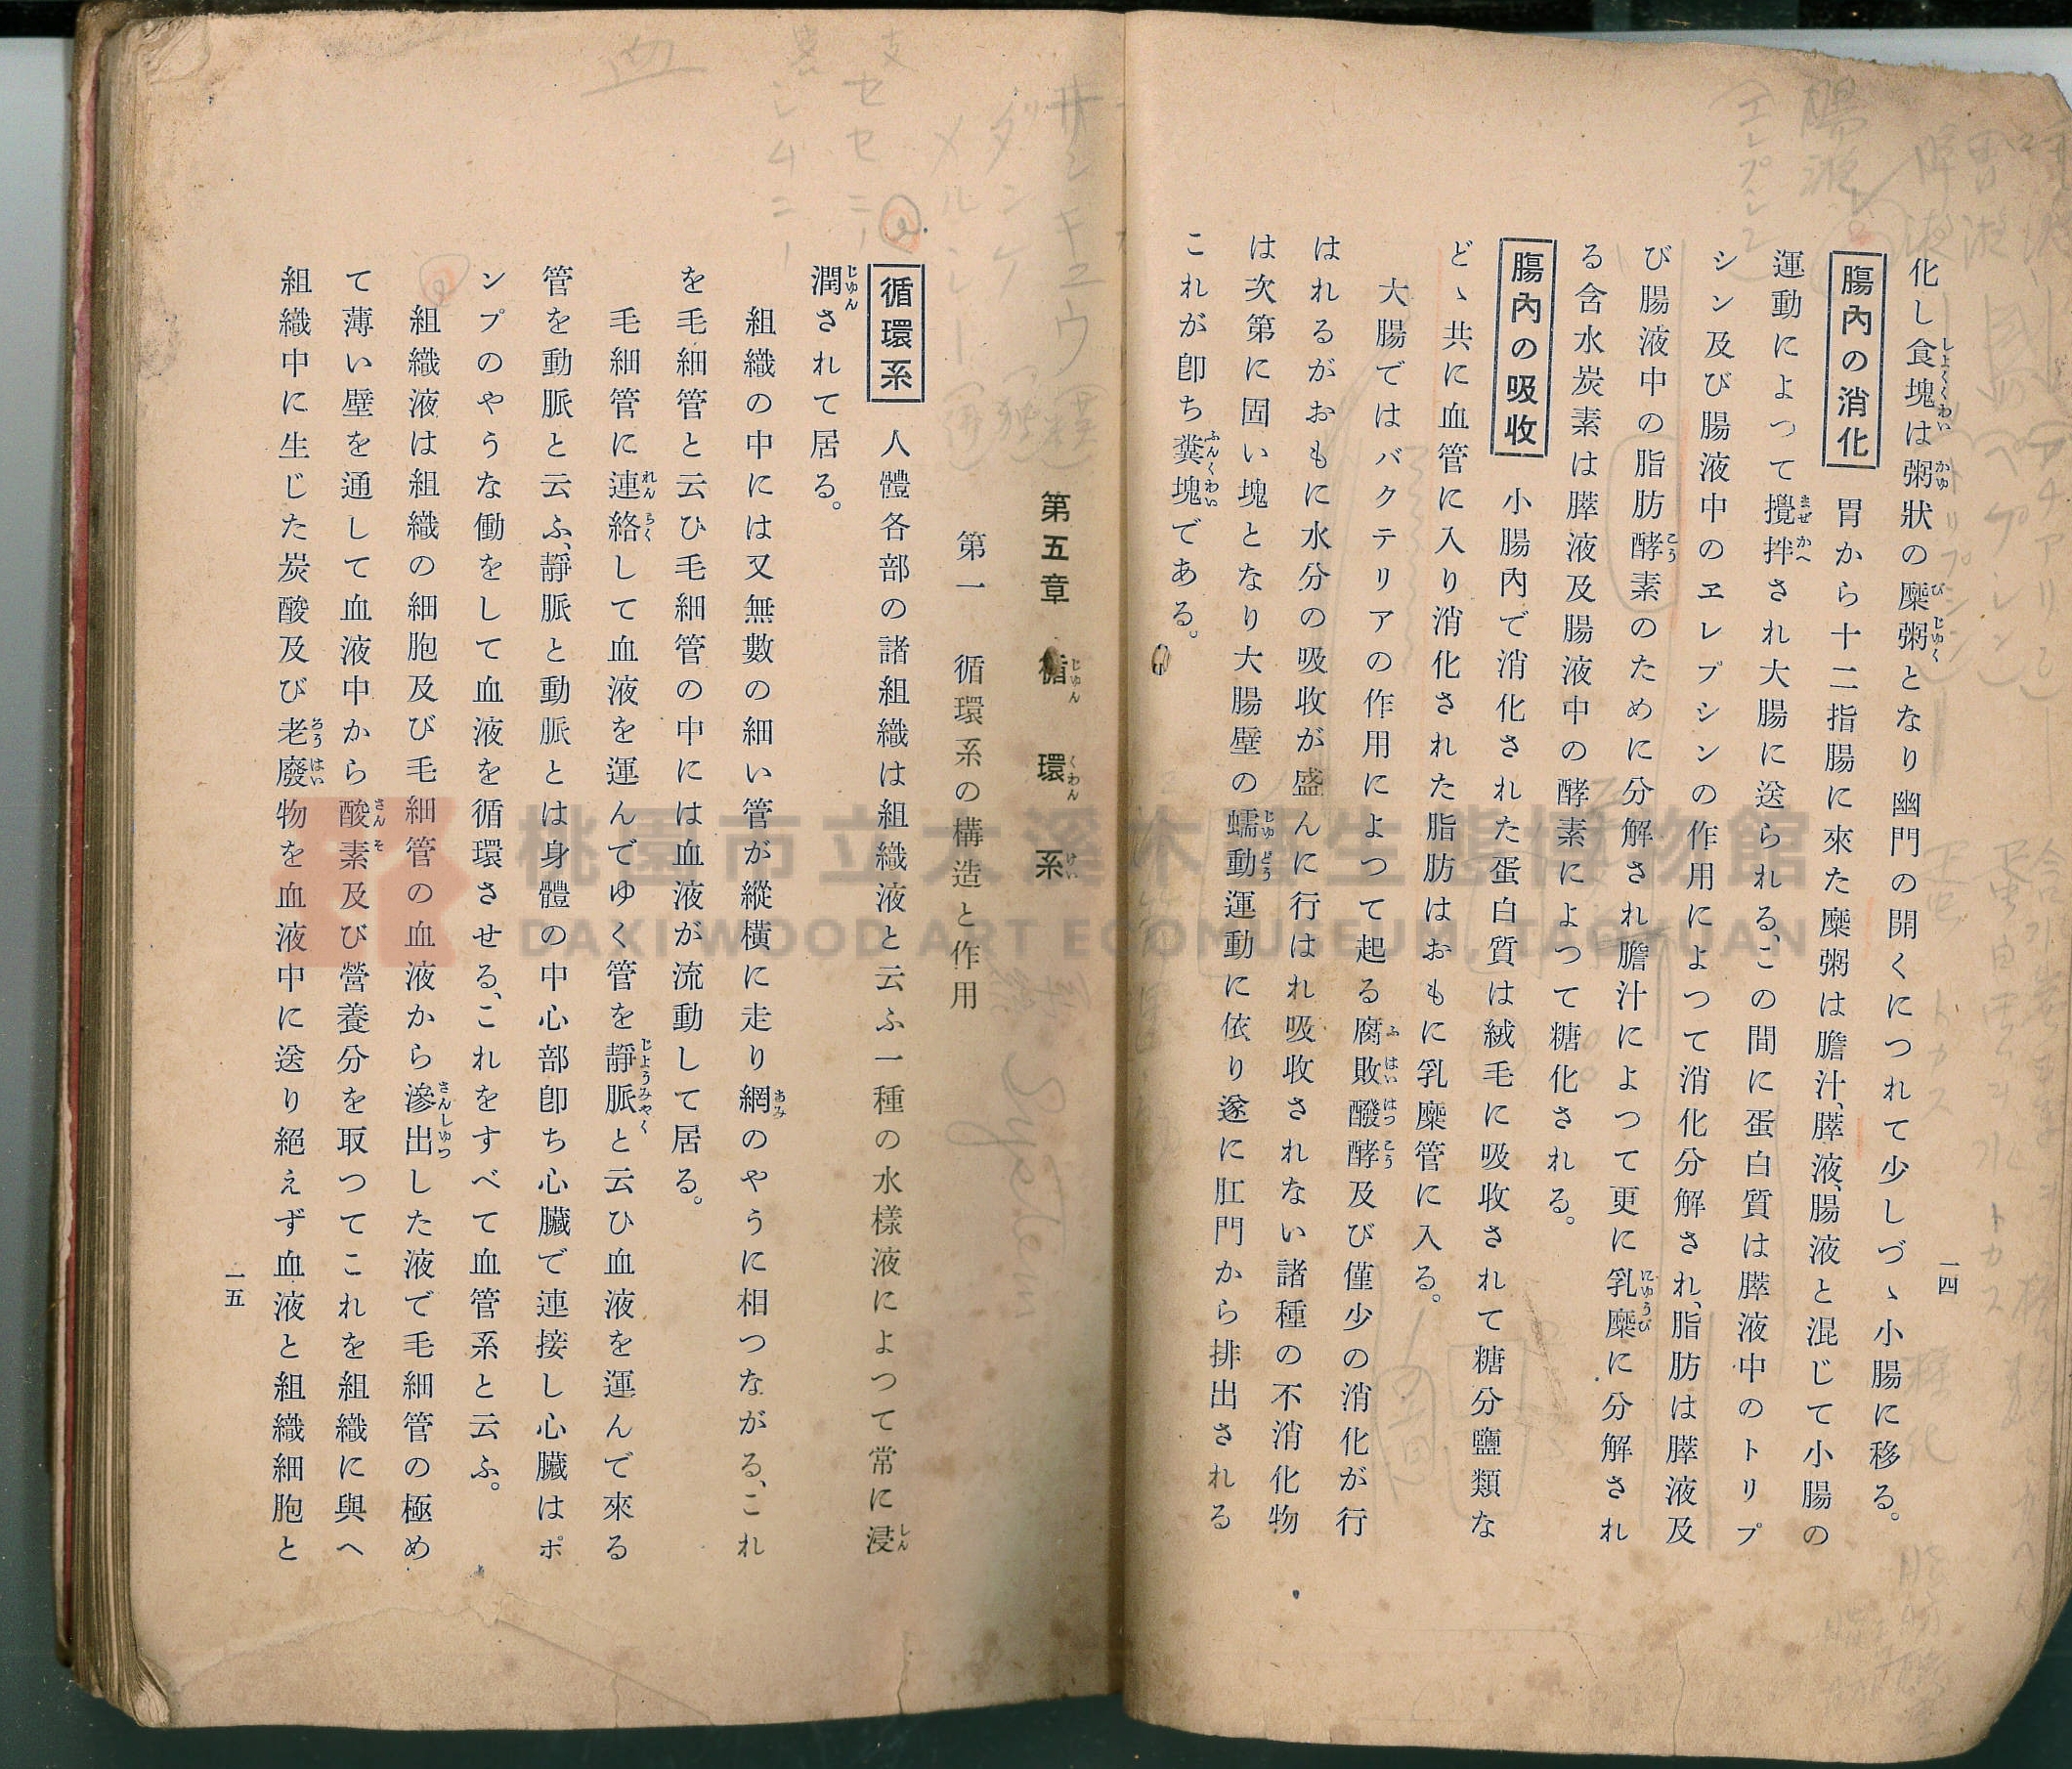 化し食塊は粥狀の糜粥となり幽門の開くにつれて少しづゝ小腸に移る。
腸內の消化 胃から十二指腸に來た糜粥は膽汁、膵液、腸液と混じて小腸の
運動によつて攪拌され大腸に送られる、この間に蛋白質は膵液中のトリプ
シン及び腸液中のヱレプシンの作用によつて消化分解され、脂肪は膵液及
び腸液中の脂肪酵素のために分解され膽汁によつて更に乳糜に分解され
る含水炭素は膵液及腸液中の酵素によつて糖化される。
腸內の吸收 小腸內で消化された蛋白質は絨毛に吸收されて糖分鹽類な
どゝ共に血管に入り消化された脂肪はおもに乳糜管に入る。
大腸ではバクテリアの作用によつて起る腐敗醱酵及び僅少の消化が行
はれるがおもに水分の吸收が盛んに行はれ吸收されない諸種の不消化物
は次第に固い塊となり大腸壁の蠕動運動に依り遂に肛門から排出される
これが卽ち糞塊である。
一四
第五章 循環系
第一 循環系の構造と作用
循環系 人體各部の諸組織は組織液と云ふ一種の水樣液によつて常に浸
潤されて居る。
組織の中には又無數の細い管が縱橫に走り網のやうに相つながる、これ
を毛細管と云ひ毛細管の中には血液が流動して居る。
毛細管に連絡して血液を運んでゆく管を靜脈と云ひ血液を運んで來る
管を動脈と云ふ、靜脈と動脈とは身體の中心部卽ち心臟で連接し心臟はポ
ンプのやうな働をして血液を循環させる、これをすべて血管系と云ふ。
組織液は組織の細胞及び毛細管の血液から滲出した液で毛細管の極め
て薄い壁を通して血液中から酸素及び營養分を取つてこれを組織に與へ
組織中に生じた炭酸及び老廢物を血液中に送り絕えず血液と組織細胞と
一五
System
桃園市立大溪木藝生態博物館
DAXI WOOD ART ECOMUSEUM, TAOYUAN